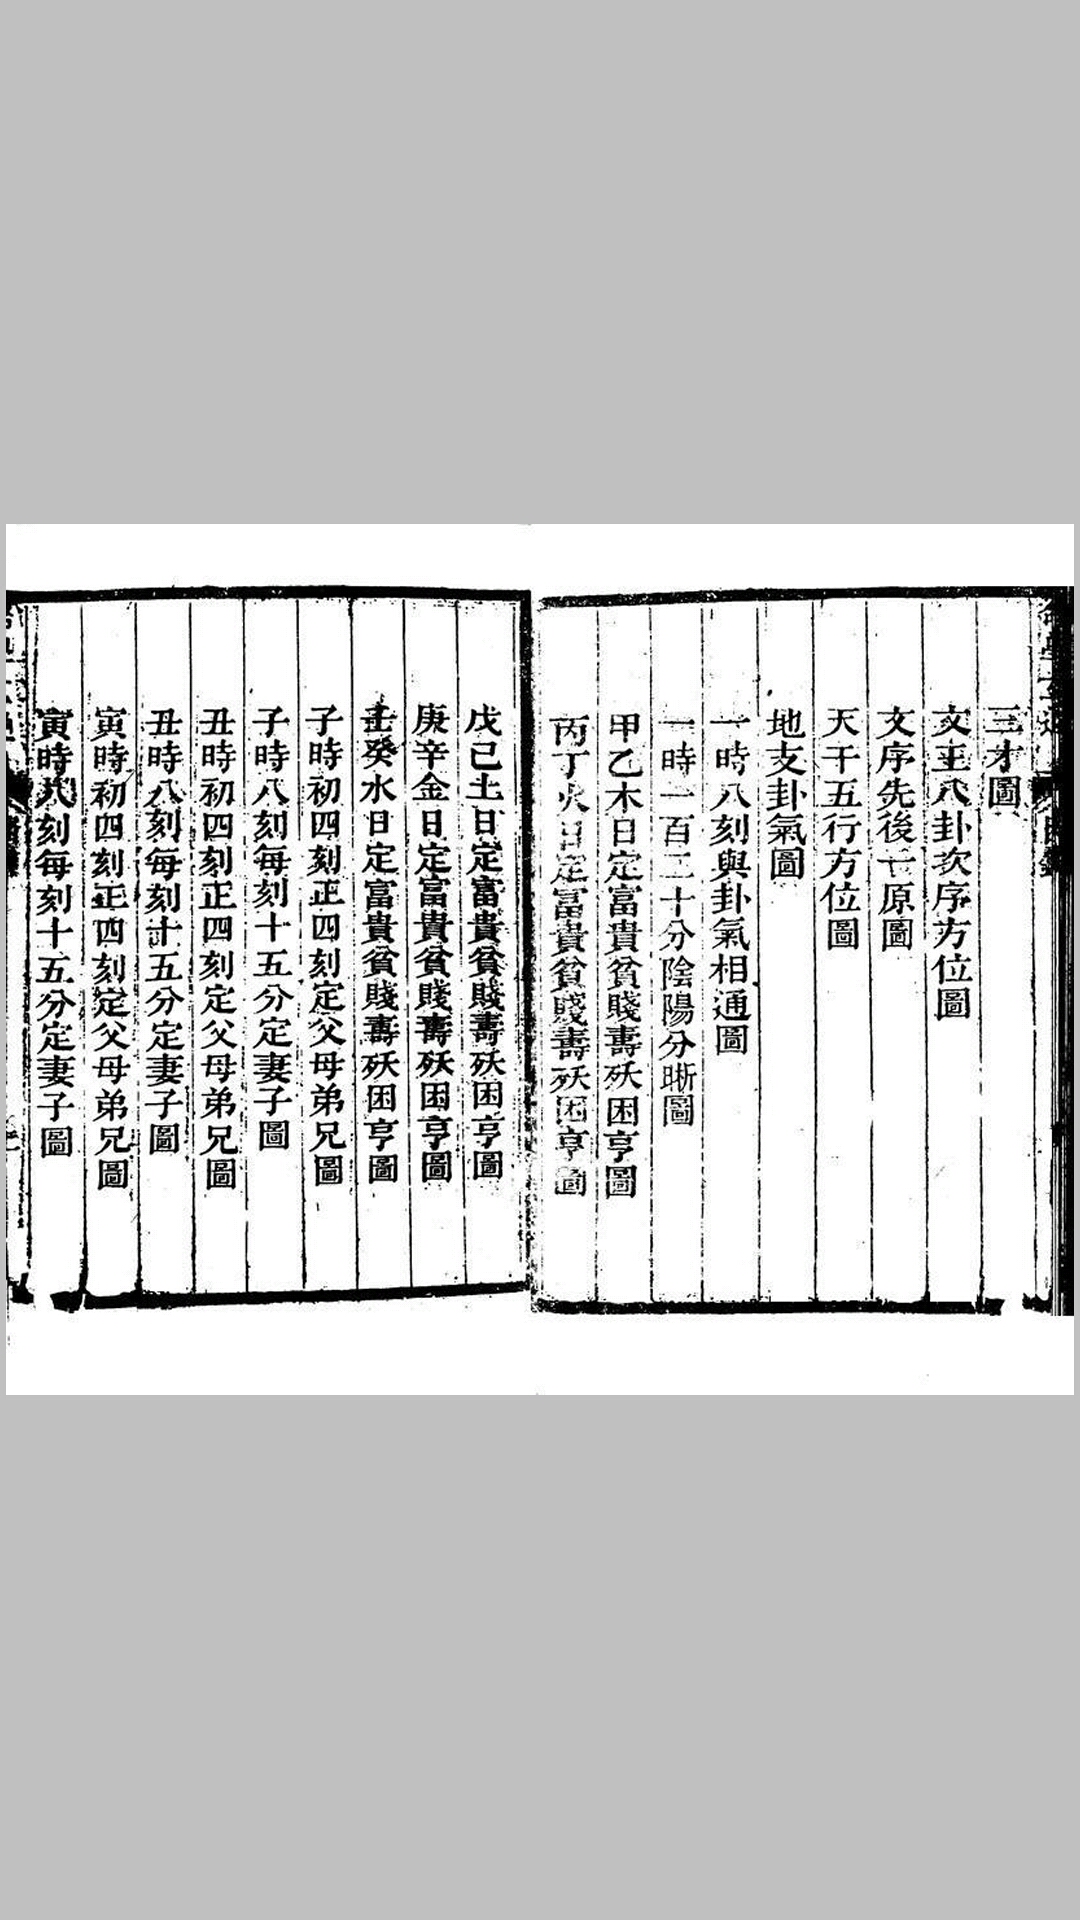 三才圖
文王八卦次序方位圖
文序先後一原圖
天干五行方位圖
地支卦氣圖
一時八刻與卦氣相通圖
一時一百二十分陰陽分晰圖
甲乙木日定富貴貧賤壽殀困亨圖
丙丁火日定富貴貧賤壽殀困亨圖
戊己土日定富貴貧賤壽殀困亨圖
庚辛金日定富貴貧賤壽殀困亨圖
壬癸水日定富貴貧賤壽殀困亨圖
子時初四刻正四刻定父母弟兄圖
子時八刻每刻十五分定妻子圖
丑時初四刻正四刻定父母弟兄圖
丑時八刻每刻十五分定妻子圖
寅時初四刻正四刻定父母弟兄圖
寅時八刻每刻十五分定妻子圖